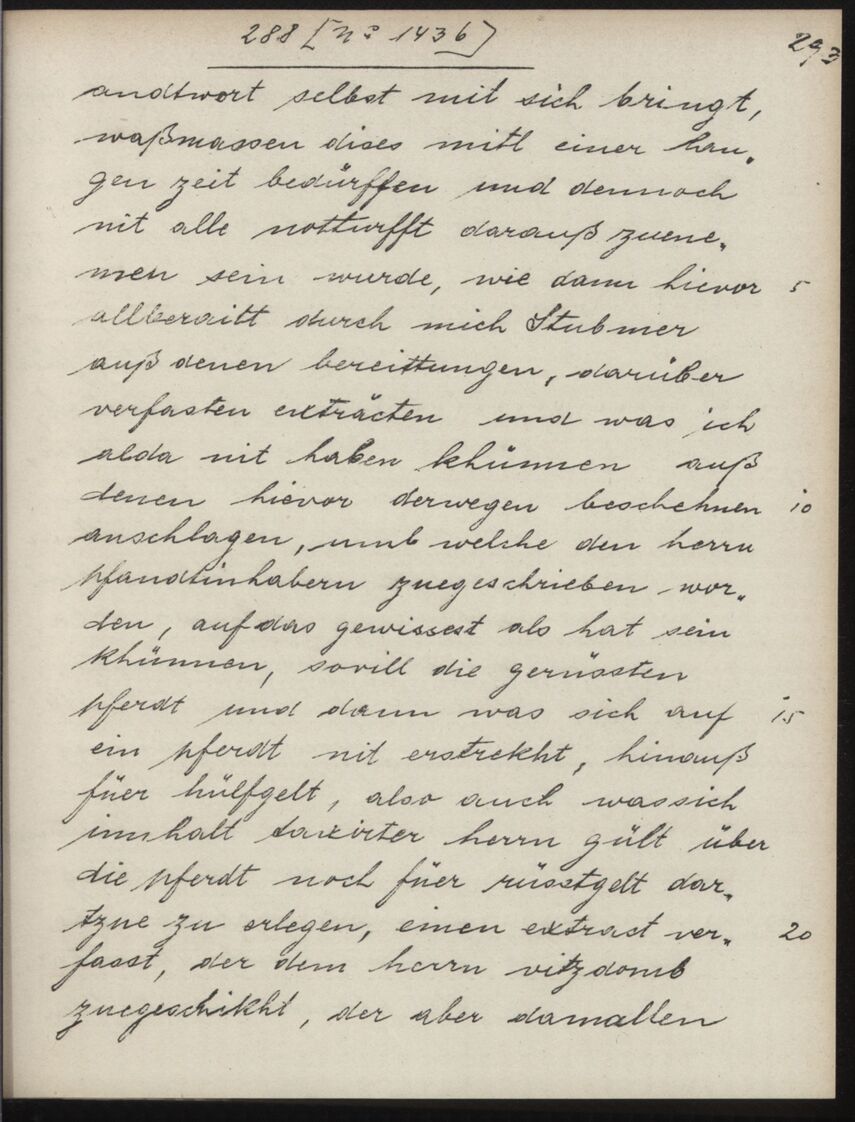 288 [No 1436]
293
andtwort selbst mit sich bringt,
waßmassen dises mitl einer lan„
gen zeit bedürffen und dennoch
nit alle notturfft darauß zuene„
men sein wurde, wie dann hievor 5
allberaitt durch mich Stubmer
auß denen bereittungen, darüber
verfasten exträcten und was ich
alda nit haben khünnen auß
denen hievor derwegen beschehnen 10
anschlagen, umb welche den herrn
pfandtinhabern zuegeschrieben wor„
den, auf das gewissest als hat sein
khünnen, sovill die gerüssten
pferdt und dann was sich auf 15
ein pferdt nit erstrekht, hinauß
füer hülfgelt, also auch was sich
innhalt taxirter herrn gült über
die pferdt noch füer rüsstgelt dar„
tzue zu erlegen, einen extract ver„ 20
fasst, der dem herrn vitzdomb
zuegeschikht, der aber damallen